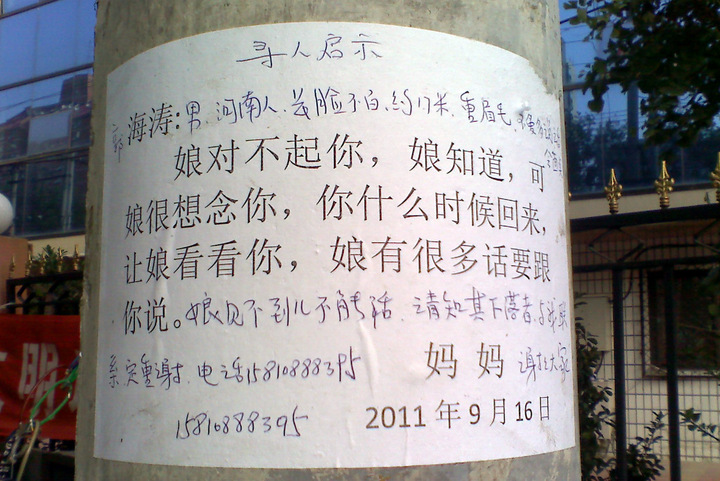 寻人启示
郭海涛:男、河南人、长脸不白、约17米、重眉毛、
娘对不起你，娘知道，可
娘很想念你，你什么时候回来，
让娘看看你，娘有很多话要跟
你说。娘见不到儿不能活、请知其下落者、与我联
系、定重谢、电话15810888395 妈妈 谢谢大家
15810888395 2011年9月16日